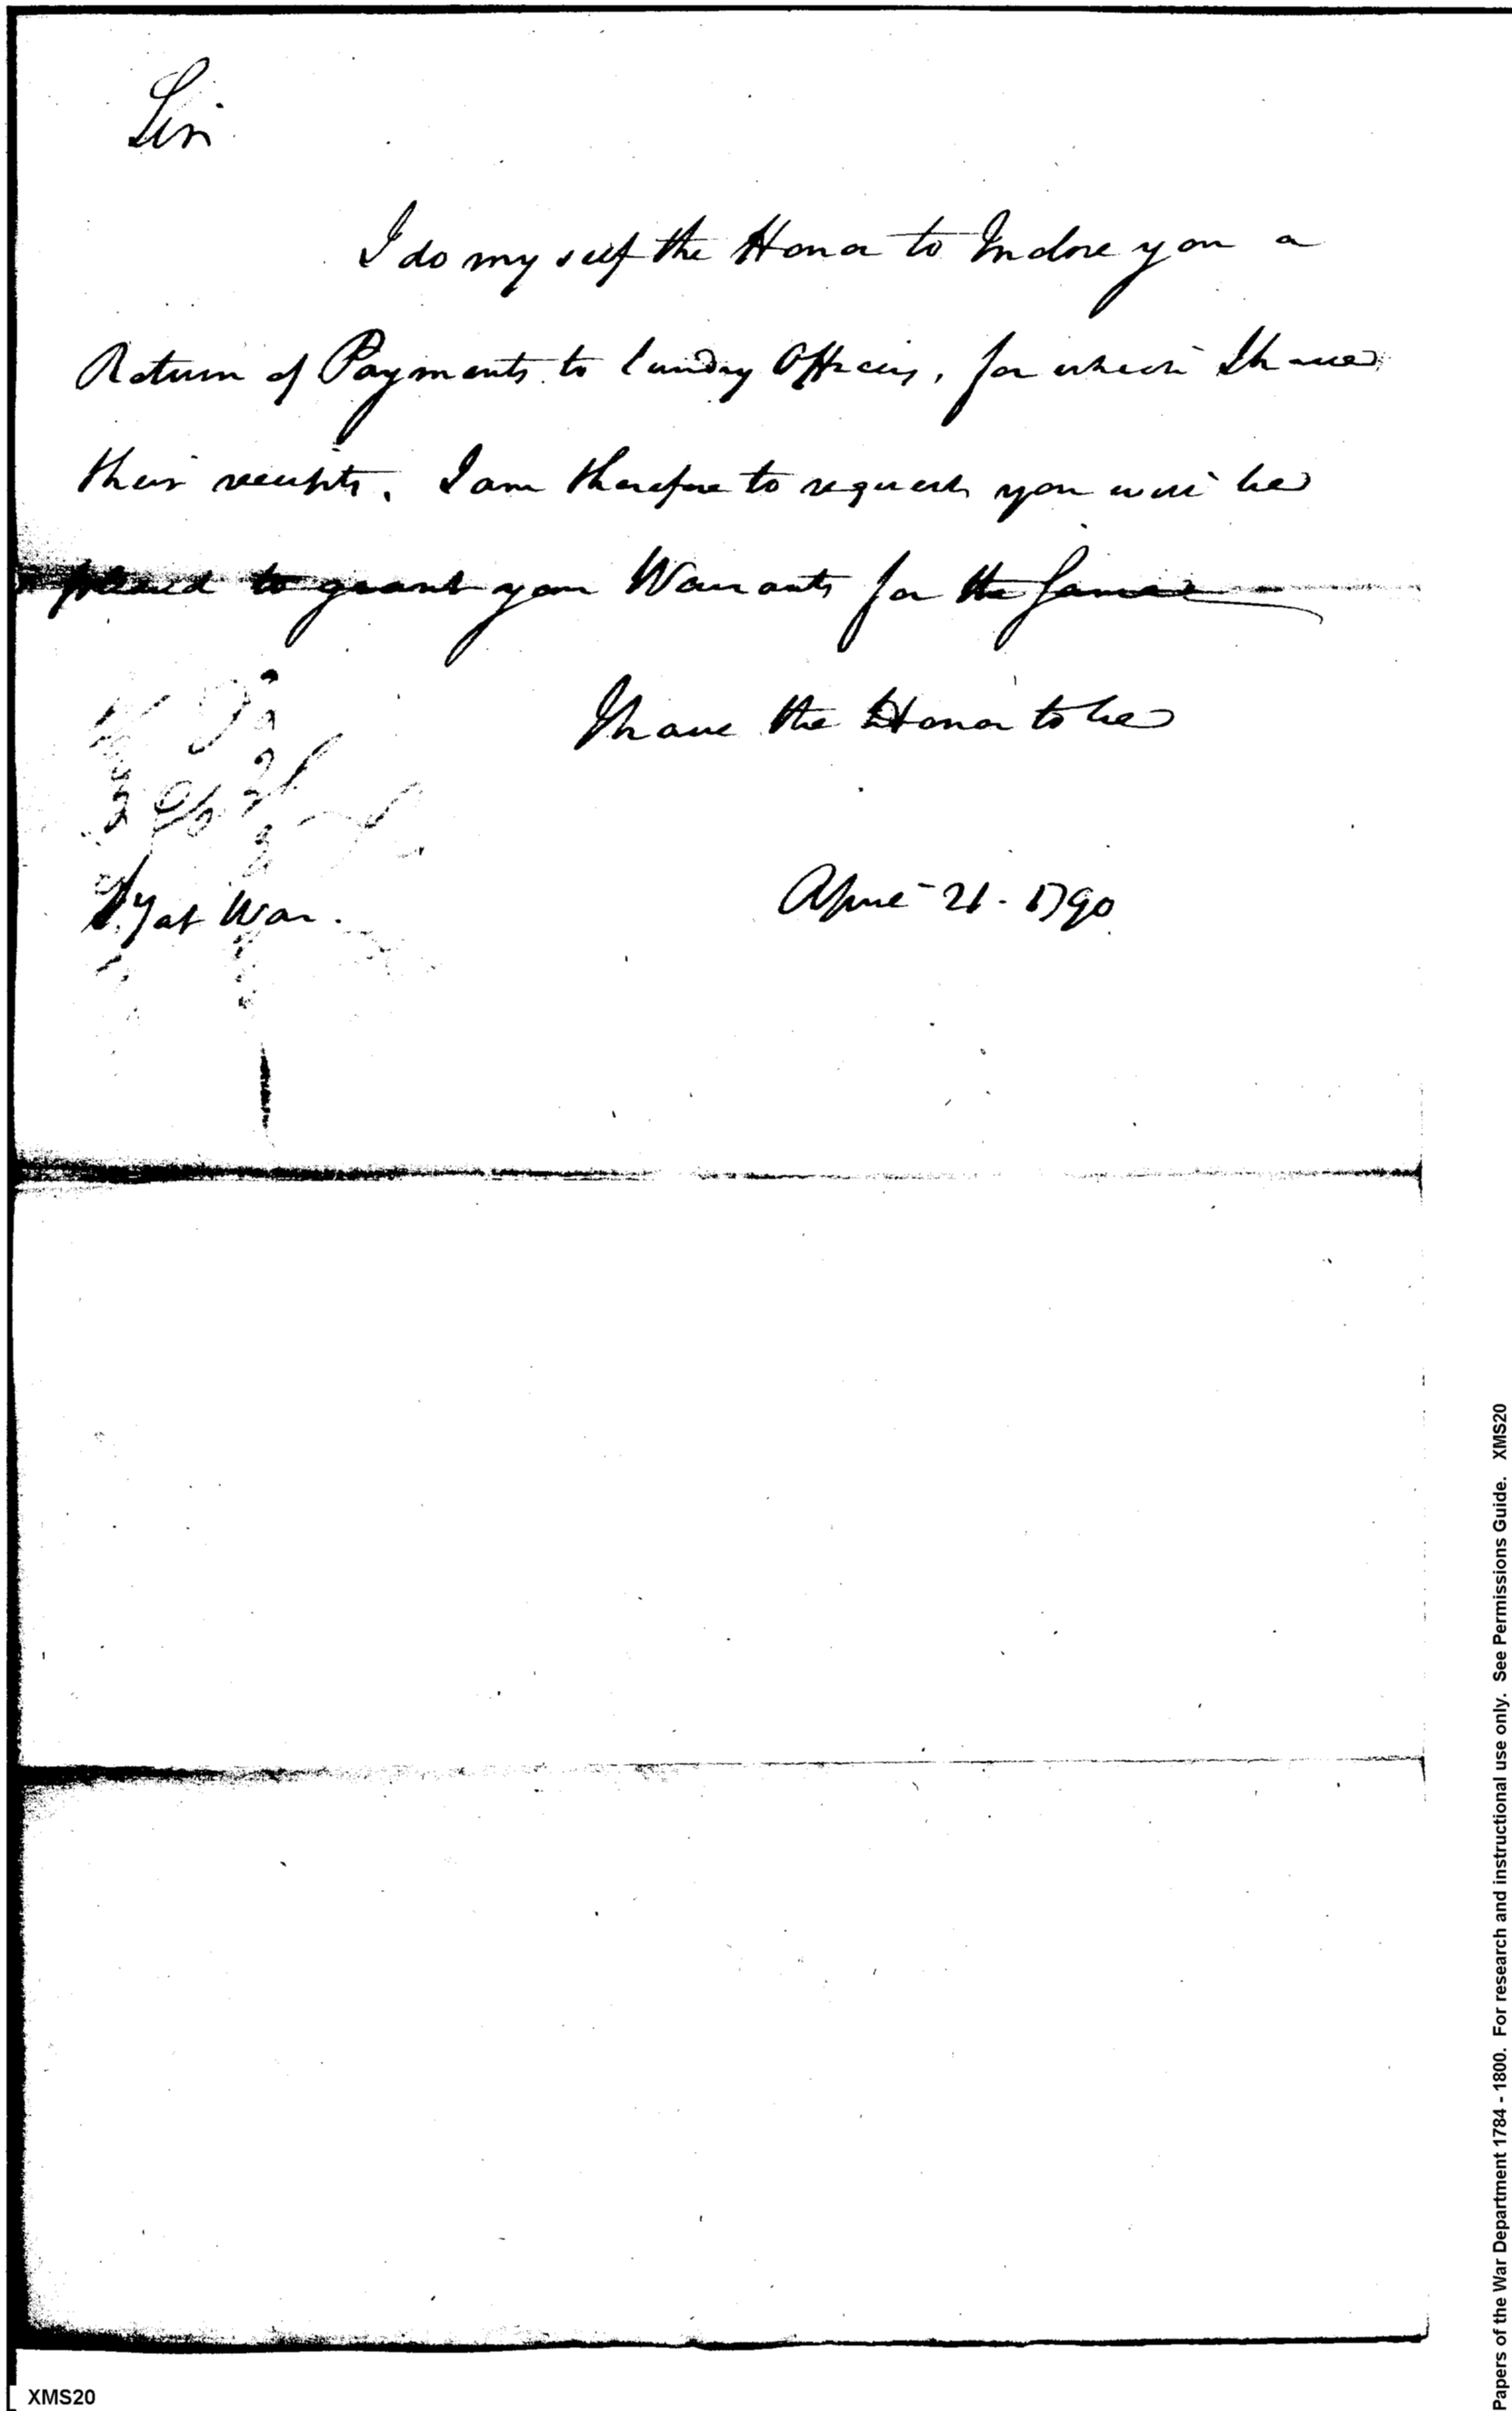 Sir
I do my self the Honor to Inclose you a
Return of Payments to Sundry Officers, for which I have
their receipts. I am therefore to request you will be
pleased to grant your Warrants for the same
I have the Honor to be
April 21. 1790
Sy at War.
XMS20
Papers of the War Department 1784 - 1800. For research and instructional use only. See Permissions Guide. XMS20